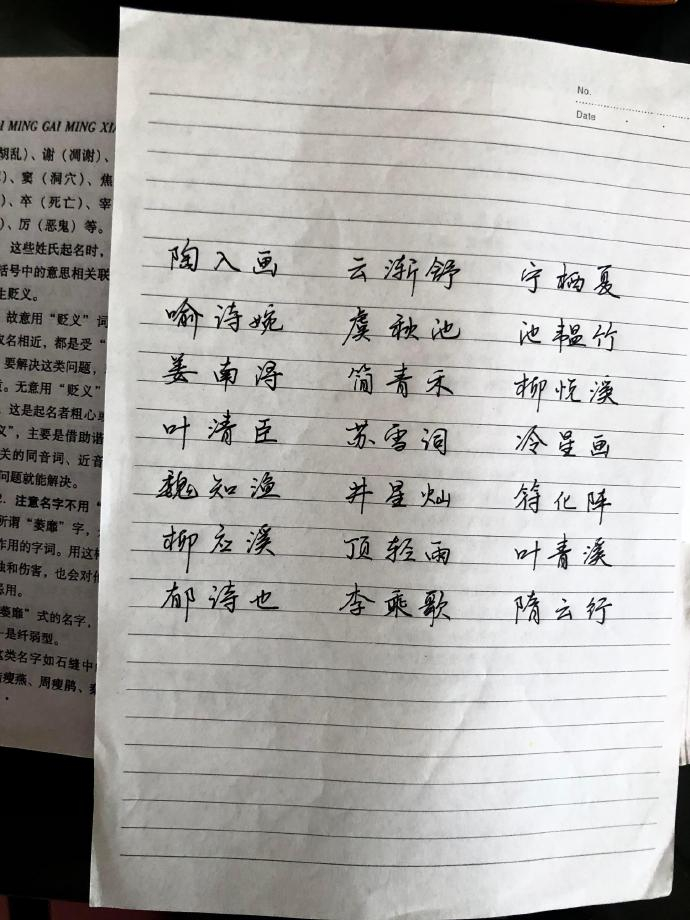 No.
Date
I MING GAI MING XI
胡乱）、谢（凋谢）、
）、窦（洞穴）、焦
）、卒（死亡）、宰
）、厉（恶鬼）等。
这些姓氏起名时，
括号中的意思相关联
生贬义。
故意用“贬义”词
名相近，都是受“
要解决这类问题，
。无意用“贬义”
这是起名者粗心或
义”，主要是借助谐
关的同音词、近音
问题就能解决。
2. 注意名字不用“
所谓“萎靡”字，
作用的字词。用这样
和伤害，也会对他
用。
萎靡”式的名字，
一是纤弱型。
这类名字如石缝中
瘦燕、周瘦鹃、
陶入画 云渐舒 宁栖夏
喻诗婉 虞秋池 池韫竹
姜南浔 简青禾 柳悦溪
叶清臣 苏雪词 冷星画
魏知渔 井星灿 符化阵
柳应溪 顶轻雨 叶青溪
郁诗也 李乘歌 隋云行